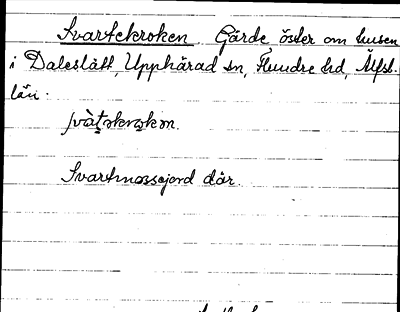 Svartekroken. Gärde öster om husen
i Daleslätt, Upphärad sn, Flundre hd, Älfsb.
län.
svàt̲əkrok̲ən.
Svartmossejord där.